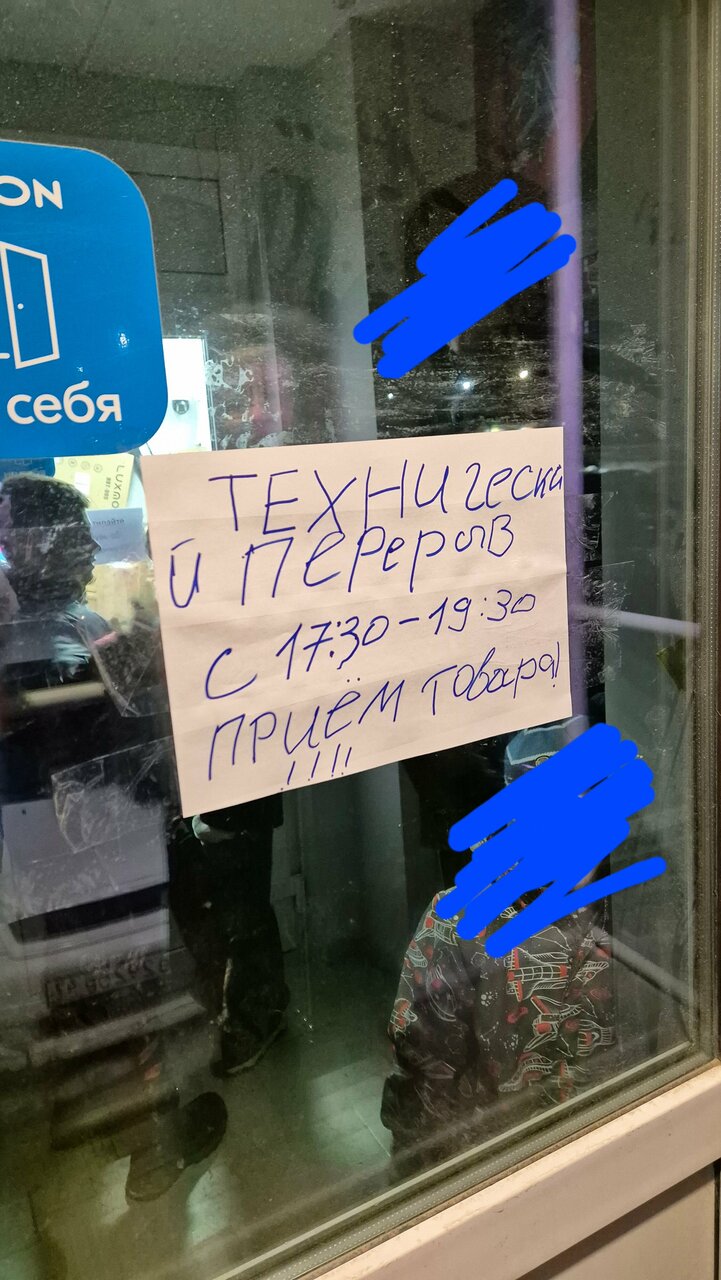 ON
себя
ТЕХНИЧЕСКИ
Й ПЕРЕРЫВ
С 17:30-19:30
ПРИЁМ ТОВАРА!
!!!!